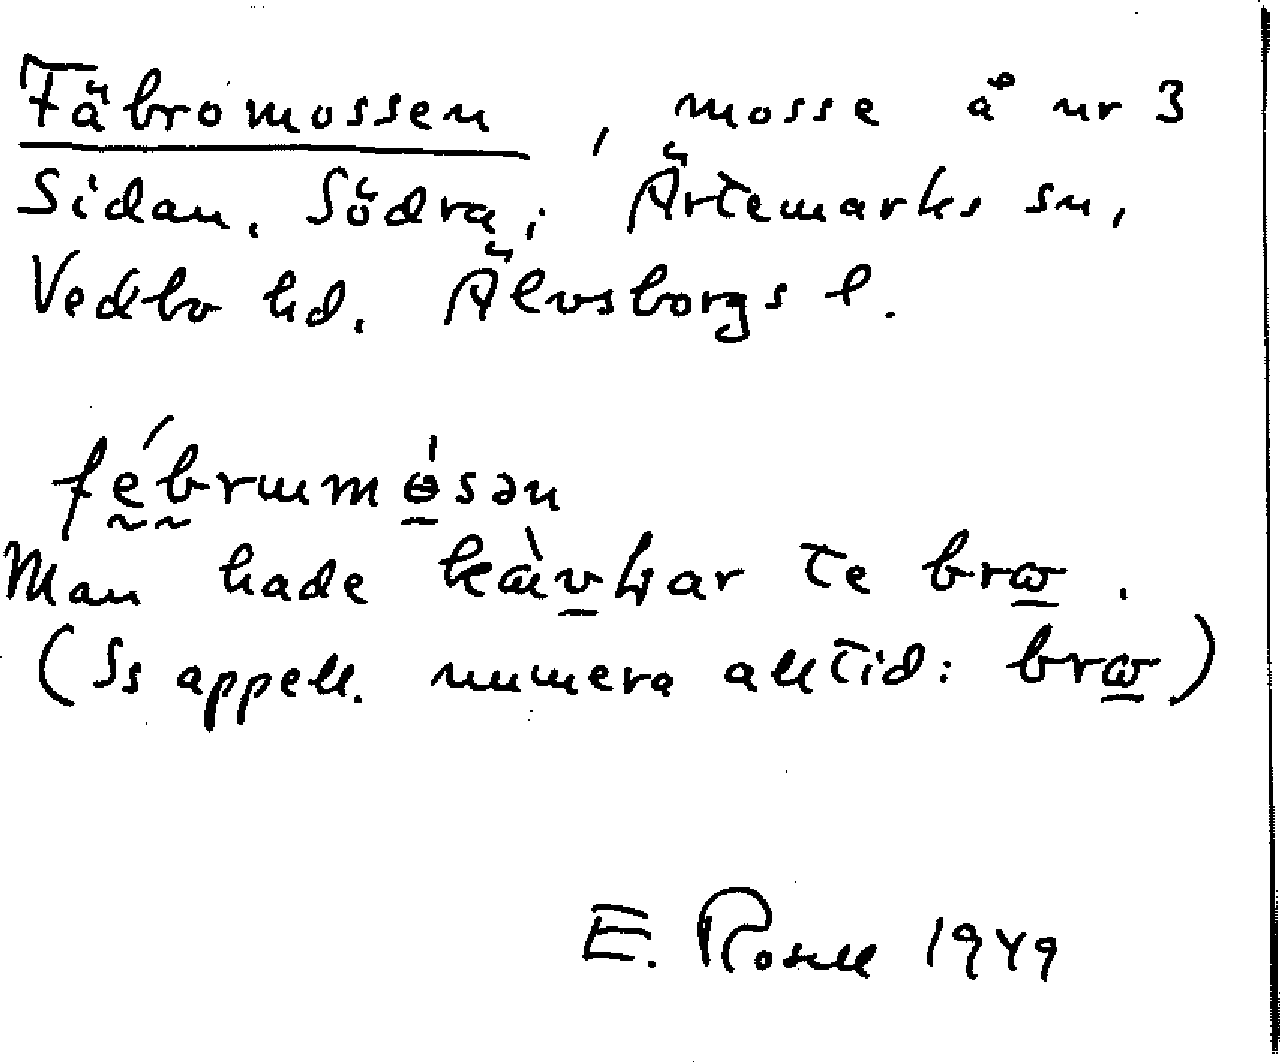 Fäbromossen, mosse å nr 3
Sidan, Södra, Ärtemarks sn,
Vedbo hd. Älvsborgs l.
Man hade te brɷ.
(Ss appell. numera alltid: brɷ)
E. Rosell 1949